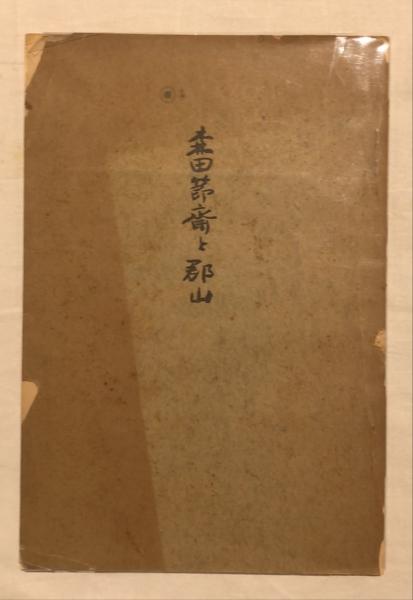 森田節齋と郡山